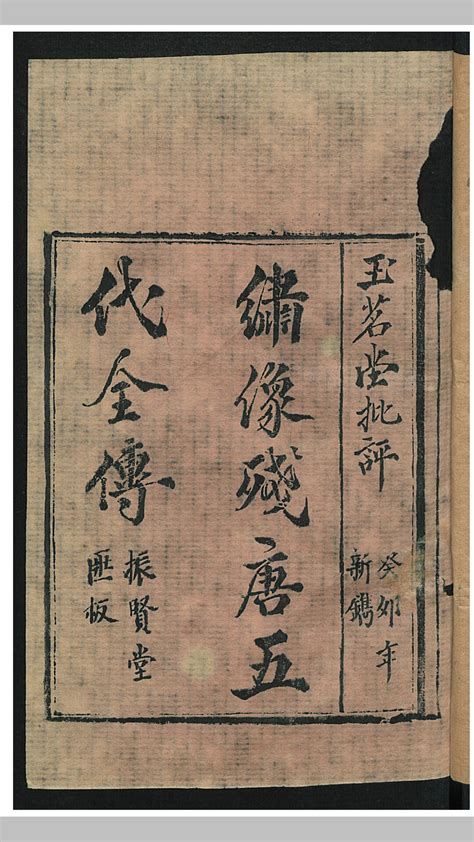 玉茗堂批評
癸卯年
新鐫
繡像殘唐五
代全傳
振賢堂
匯板